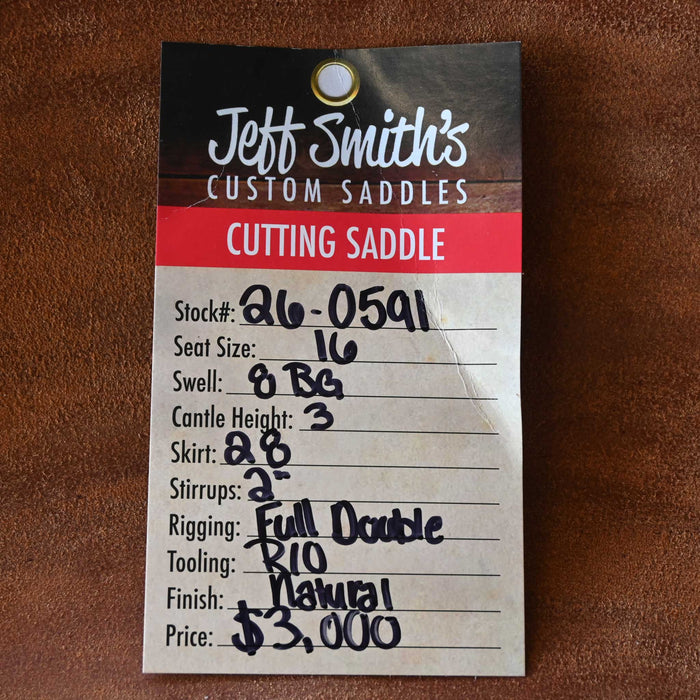 Jeff Smith's
CUSTOM SADDLES
CUTTING SADDLE
Stock#: 26-0591
Seat Size: 16
Swell: 8 BG
Cantle Height: 3
Skirt: 28
Stirrups: 2"
Rigging: Full Double
Tooling: R10
Finish: Natural
Price: $3,000